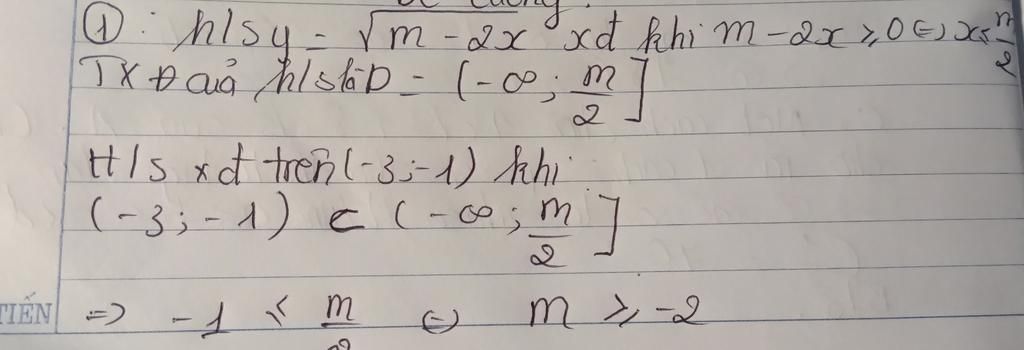 đề cương
① : h/s y = √(m - 2x) xđ khi m - 2x ≥ 0 ⇔ x ≤ m/2
TXĐ của h/s là D = (-∞; m/2]
H/s xđ trên (-3; -1) khi
(-3; -1) ⊂ (-∞; m/2]
TIẾN ⇒ -1 ≤ m/2 ⇔ m ≥ -2